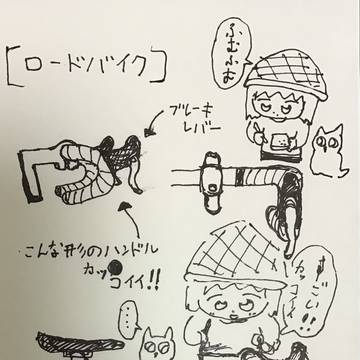 [ロードバイク]
ふむふむ
ブレーキ
レバー
こんな形のハンドル
カッ●
コイイ!!
すごい
カッコイイ
...